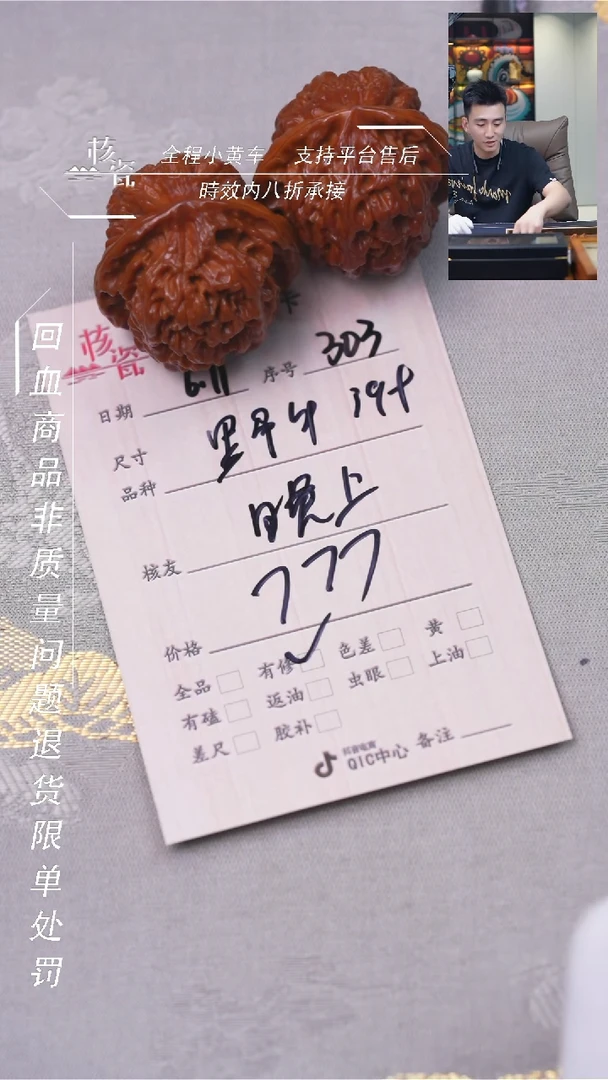 核瓷
全程小黄车 支持平台售后
時效内八折承接
回血商品非质量问题退货限单处罚
卡
核瓷
日期 6.11 序号 303
尺寸
品种
晚上
核友
777
价格
全品 有修 色差 黄
有磕 返油 虫眼 上油
差尺 胶补
抖音电商
QIC中心 备注